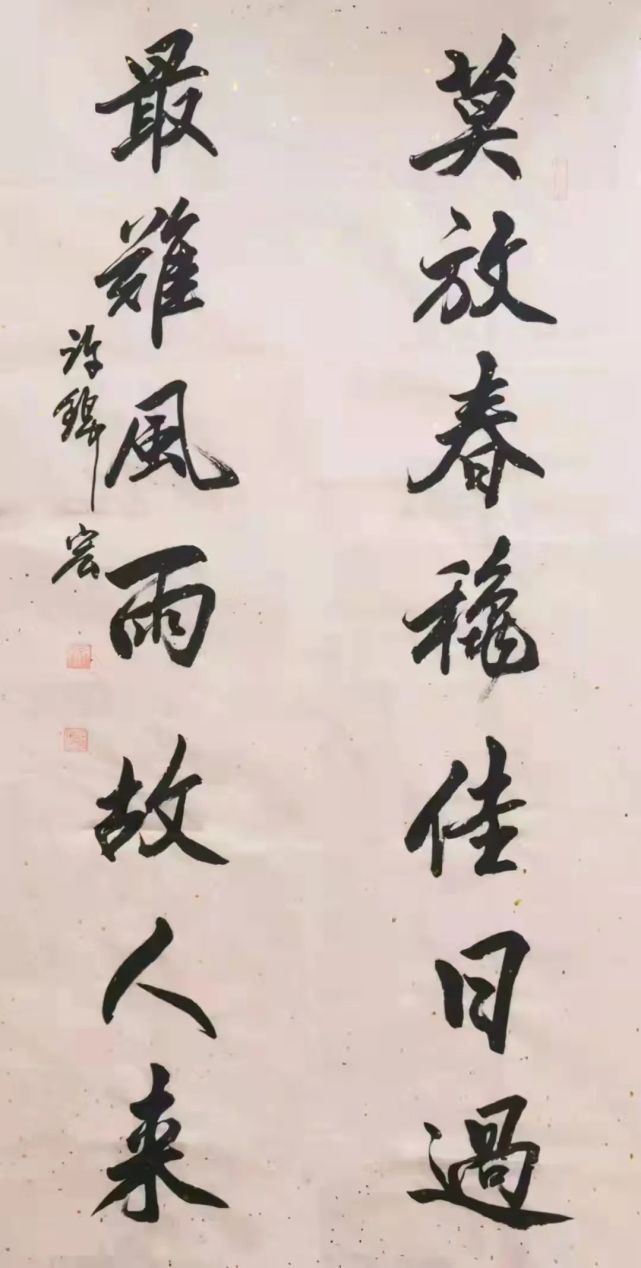 莫放春穐佳日過
最難風雨故人来
許錦宏